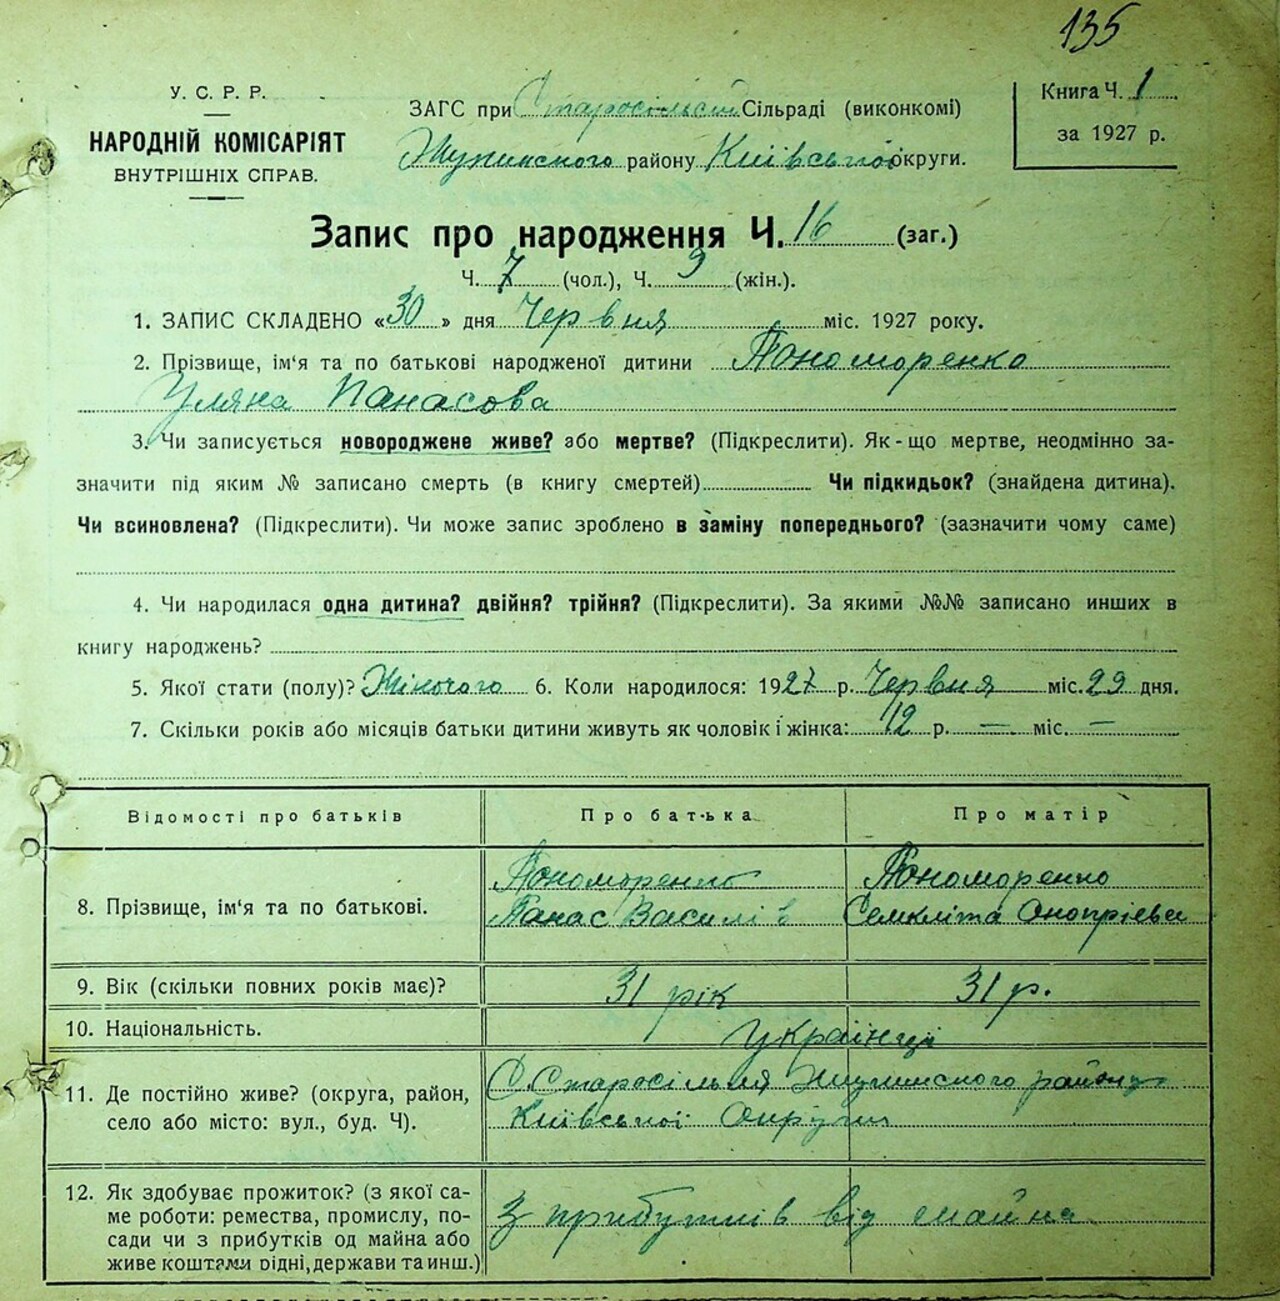 135
У. С. Р. Р.
НАРОДНІЙ КОМІСАРІЯТ
ВНУТРІШНІХ СПРАВ.
ЗАГС при Старосільській Сільраді (виконкомі)
району Київської округи.
Книга Ч. 1
за 1927 р.
Запис про народження Ч. 16 (заг.)
Ч. 7 (чол.), Ч. 9 (жін.).
1. ЗАПИС СКЛАДЕНО «30» дня Червня міс. 1927 року.
2. Прізвище, ім'я та по батькові народженої дитини Пономоренко
Уляна Панасова
3. Чи записується новороджене живе? або мертве? (Підкреслити). Як-що мертве, неодмінно за-
значити під яким № записано смерть (в книгу смертей) Чи підкидьок? (знайдена дитина).
Чи всиновлена? (Підкреслити). Чи може запис зроблено в заміну попереднього? (зазначити чому саме)
4. Чи народилася одна дитина? двійня? трійня? (Підкреслити). За якими №№ записано инших в
книгу народжень?
5. Якої стати (полу)? Жіночого 6. Коли народилося: 1927 р. Червня міс. 29 дня.
7. Скільки років або місяців батьки дитини живуть як чоловік і жінка: 12 р. — міс. —
Відомості про батьків
Про батька
Про матір
8. Прізвище, ім'я та по батькові.
Пономоренко
Панас Василів
Пономоренко
Семкліта Онопріева
9. Вік (скільки повних років має)?
31 рік
31 р.
10. Національність.
Українці
11. Де постійно живе? (округа, район,
село або місто: вул., буд. Ч).
С. Старосілля району
Київської Округи
12. Як здобуває прожиток? (з якої са-
ме роботи: ремества, промислу, по-
сади чи з прибутків од майна або
живе коштами рідні, держави та инш.)
З прибутків від майна